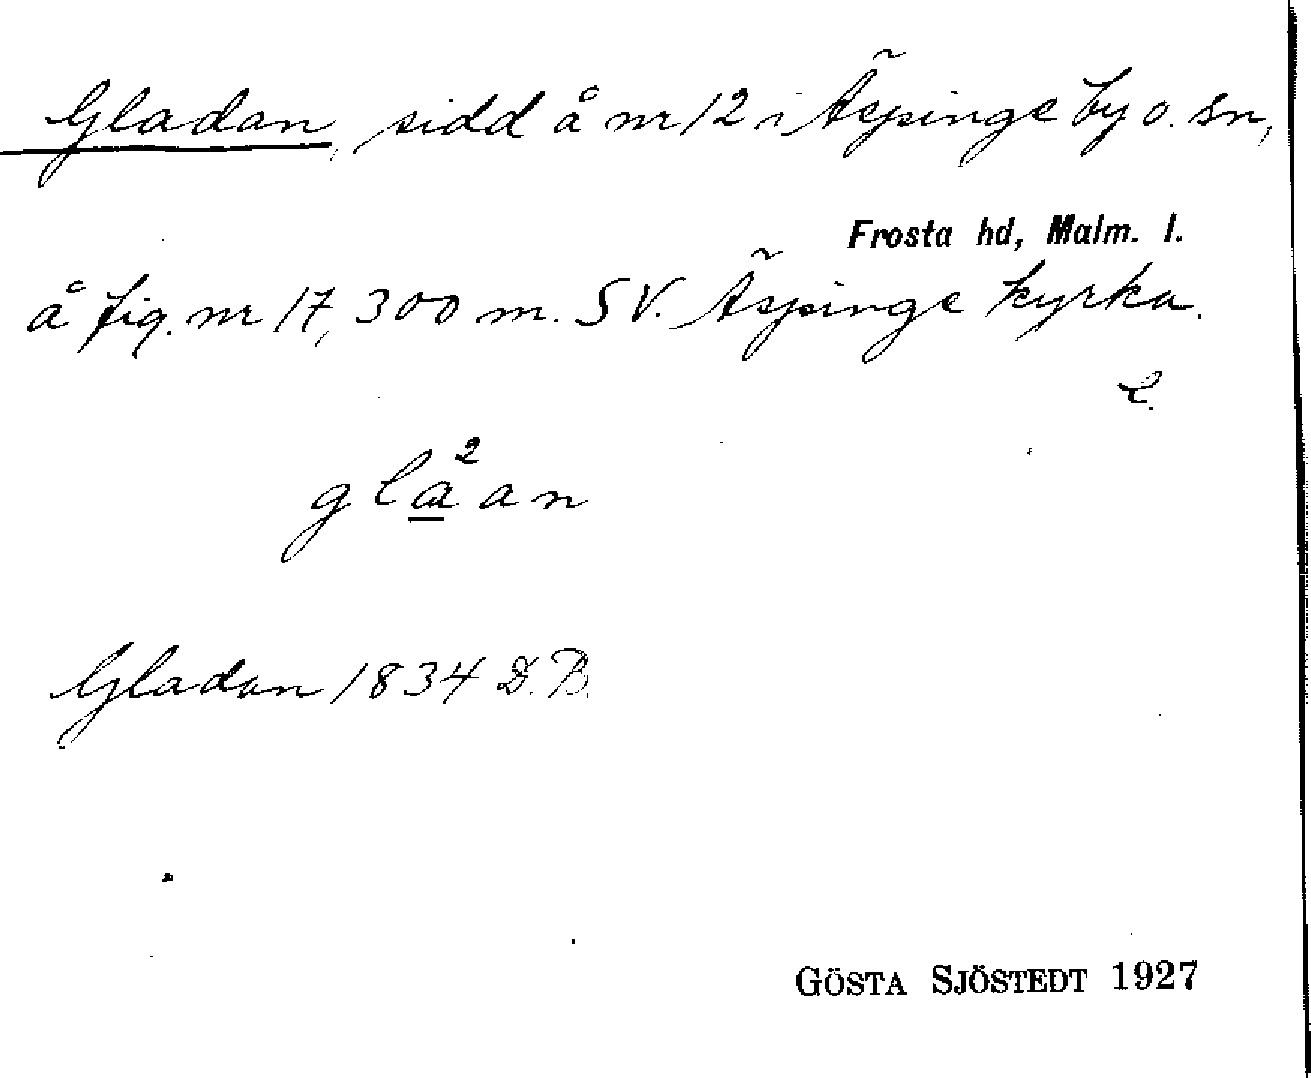 Gladan, sidd å nr 12 i Äspinge by o. sn,
Frosta hd, Malm. l.
å fig. nr 17, 300 m. SV. Äspinge kyrka.
L.
gla²an
Gladan 1834 D.B.
GÖSTA SJÖSTEDT 1927